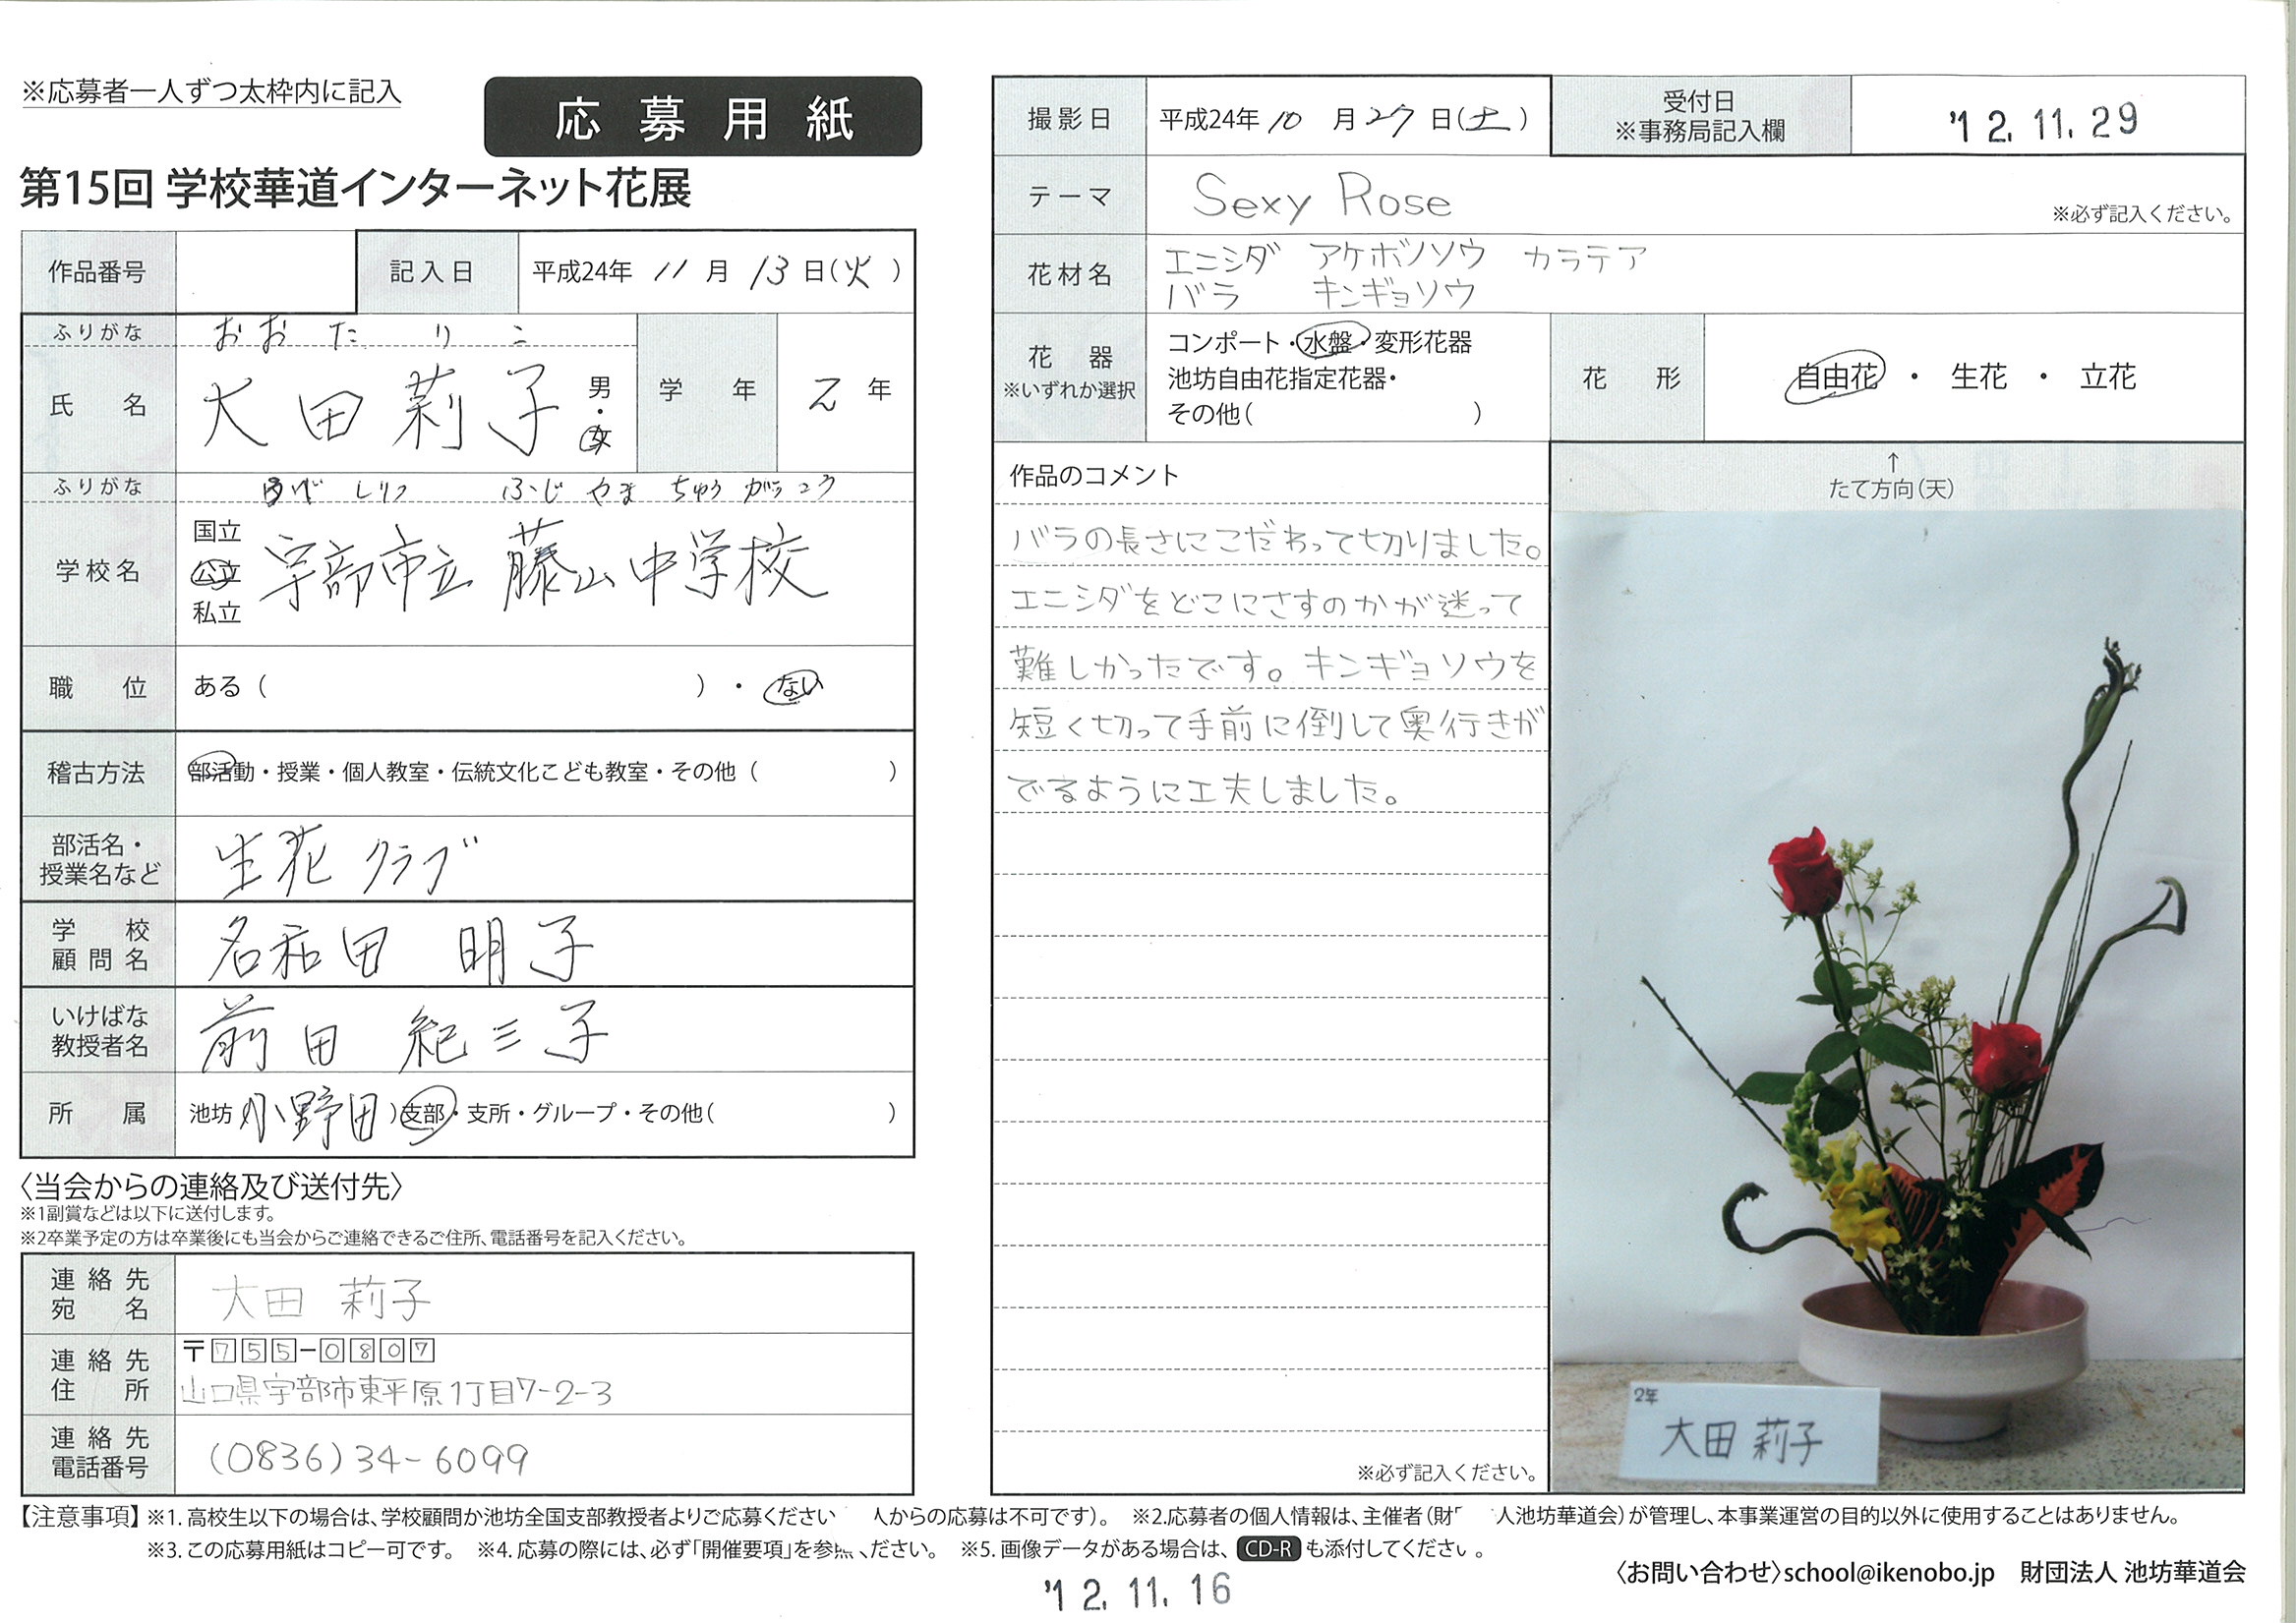 ※応募者一人ずつ太枠内に記入
応募用紙
第15回 学校華道インターネット花展
作品番号
記入日 平成24年 11月 13日(火)
ふりがな おおた りこ
氏名 大田 莉子 男・女
学年 2年
ふりがな うべ しりつ ふじ やま ちゅう がっ こう
学校名 国立 公立 私立 宇部市立 藤山中学校
職位 ある( )・ない
稽古方法 部活動・授業・個人教室・伝統文化こども教室・その他( )
部活名・授業名など 生花クラブ
学校顧問名 名和田 明子
いけばな教授者名 前田 紀三子
所属 池坊 小野田)支部・支所・グループ・その他( )
〈当会からの連絡及び送付先〉
※1副賞などは以下に送付します。
※2卒業予定の方は卒業後にも当会からご連絡できるご住所、電話番号を記入ください。
連絡先宛名 大田 莉子
連絡先住所 〒755-0807
山口県宇部市東平原1丁目7-2-3
連絡先電話番号 (0836)34-6099
撮影日 平成24年 10月27日(土)
受付日 ※事務局記入欄 '12.11.29
テーマ Sexy Rose ※必ず記入ください。
花材名 エニシダ アケボノソウ カラテア
バラ キンギョソウ
花器 ※いずれか選択
コンポート・水盤・変形花器
池坊自由花指定花器・
その他( )
花形 自由花・生花・立花
作品のコメント
バラの長さにこだわって切りました。
エニシダをどこにさすのかが迷って
難しかったです。キンギョソウを
短く切って手前に倒して奥行きが
でるように工夫しました。
※必ず記入ください。
↑
たて方向(天)
2年
大田 莉子
【注意事項】※1.高校生以下の場合は、学校顧問か池坊全国支部教授者よりご応募ください 人からの応募は不可です)。 ※2.応募者の個人情報は、主催者(財 人池坊華道会)が管理し、本事業運営の目的以外に使用することはありません。
※3.この応募用紙はコピー可です。 ※4.応募の際には、必ず「開催要項」を参 ください。 ※5.画像データがある場合は、CD-Rも添付してください。
〈お問い合わせ〉school@ikenobo.jp 財団法人 池坊華道会
'12.11.16